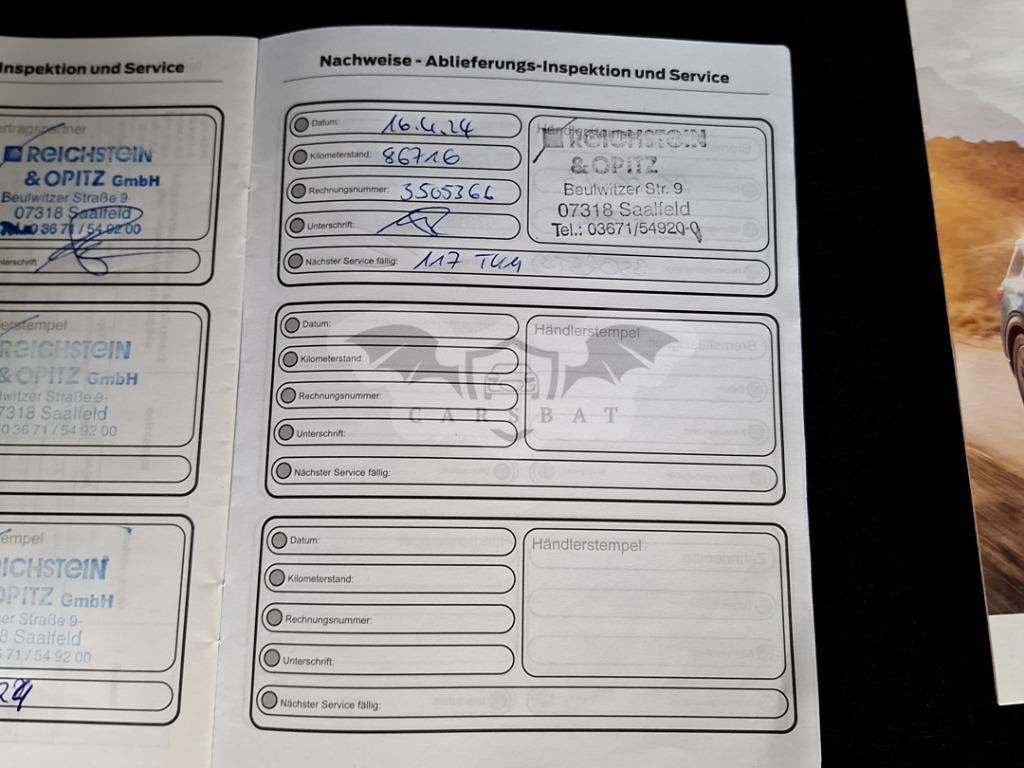 Inspektion und Service
REICHSTEIN
& OPITZ GmbH
Beulwitzer Straße 9
07318 Saalfeld
Tel. 0 36 71 / 54 92 00
REICHSTEIN
& OPITZ GmbH
witzer Straße 9
7318 Saalfeld
0 36 71 / 54 92 00
empel
ICHSTEIN
OPITZ GmbH
er Straße 9
8 Saalfeld
71 / 54 92 00
24
Nachweise - Ablieferungs-Inspektion und Service
Datum: 16.4.24
Kilometerstand: 86716
Rechnungsnummer: 3505366
Unterschrift:
Nächster Service fällig: 117 TKM
Händlerstempel
REICHSTEIN
& OPITZ
Beulwitzer Str. 9
07318 Saalfeld
Tel.: 03671/54920-0
Datum:
Kilometerstand:
Rechnungsnummer:
Unterschrift:
Nächster Service fällig:
Händlerstempel
CARSBAT
Datum:
Kilometerstand:
Rechnungsnummer:
Unterschrift:
Nächster Service fällig:
Händlerstempel